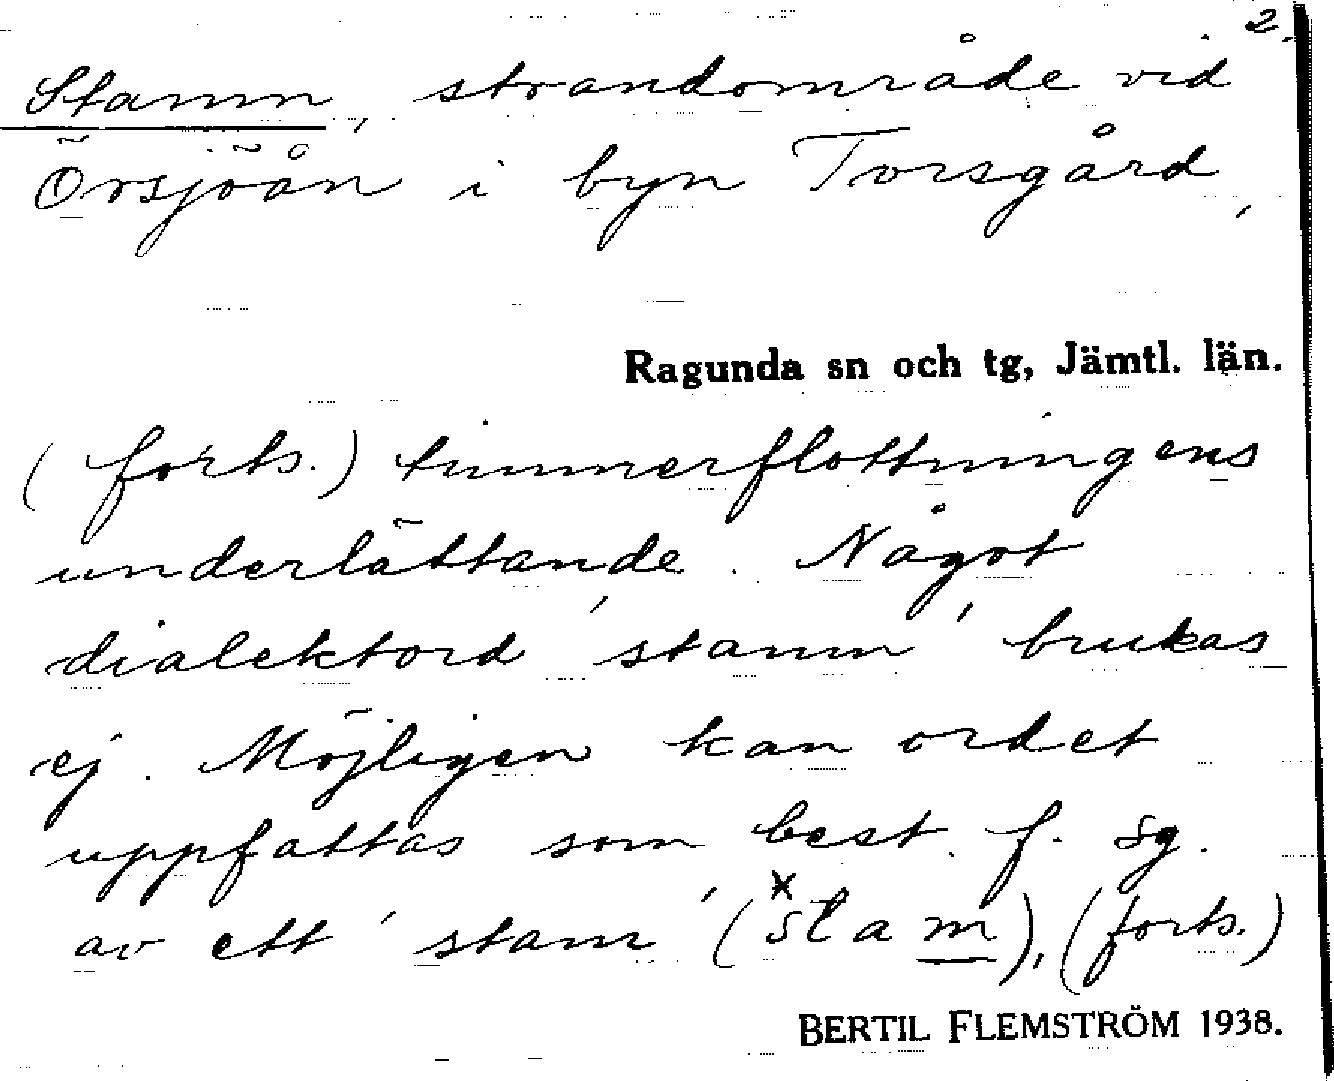 2.
Stamn, strandområde vid
Örsjöån i byn Torsgård,
Ragunda sn och tg, Jämtl. län.
(forts.) timmerflottningens
underlättande. Något
dialektord 'stamn' brukas
ej. Möjligen kan ordet
uppfattas som best. f. sg.
av ett 'stam' (ˣstam), (forts.)
BERTIL FLEMSTRÖM 1938.